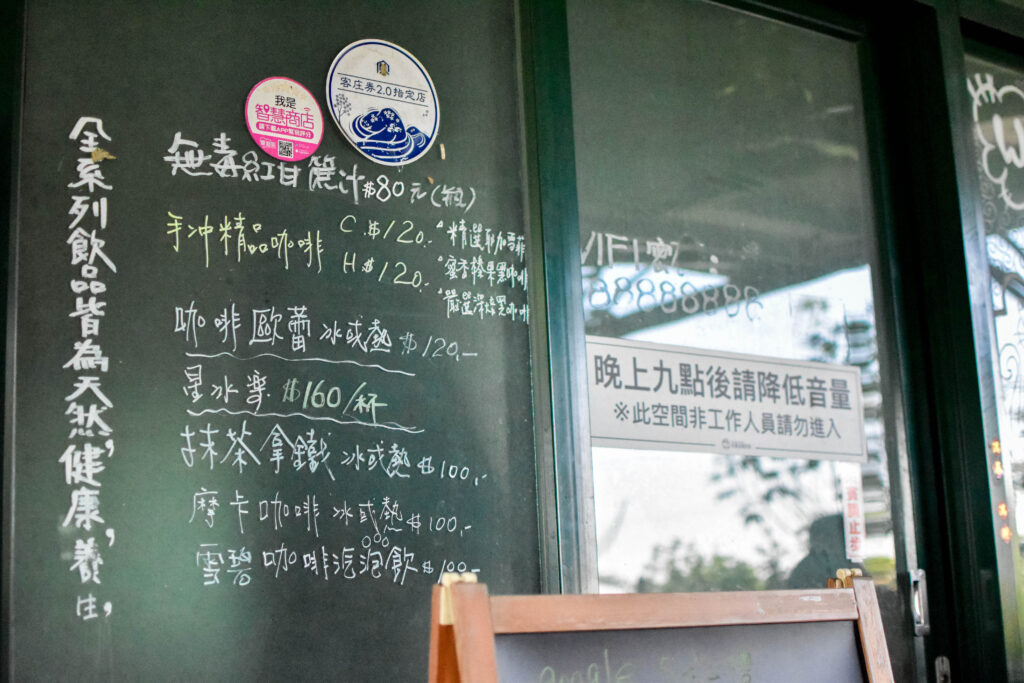 全系列飲品皆為天然,健康,養生,
我是
智慧商店
請下載APP幫我評分
客庄券2.0指定店
無毒紅甘蔗汁$80元(瓶)
手冲精品咖啡
C $120.-
H $120.-
精選耶加雪菲
蜜香榛果黑咖啡
嚴選深焙黑咖啡
咖啡歐蕾 冰或熱 $120.-
星冰樂 $160/杯
抹茶拿鐵 冰或熱 $100.-
摩卡咖啡 冰或熱 $100.-
雪碧咖啡汽泡飲 $100.-
88888888
晚上九點後請降低音量
※此空間非工作人員請勿進入
W